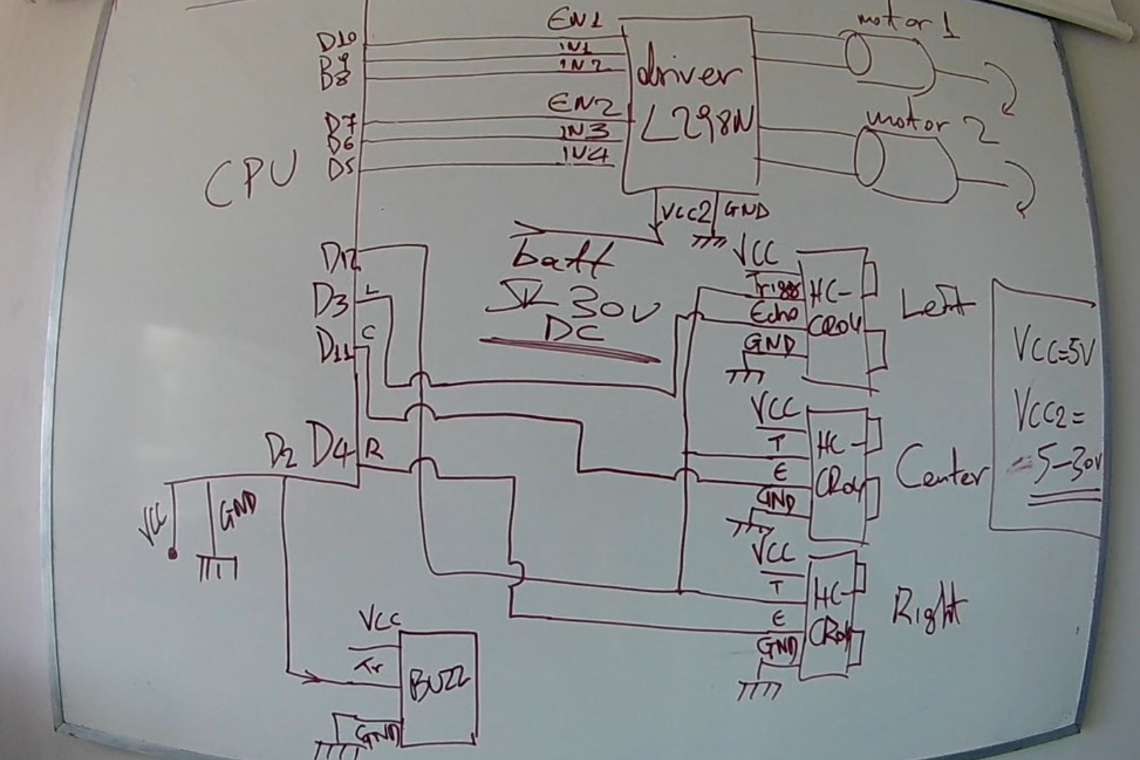 motor 1
EN1
D10
IN1
B9
IN2
B8
driver
L298N
EN2
D7
IN3
D6
IN4
D5
motor 2
CPU
VCC2
GND
batt
5V-30V
DC
D12
D3
L
D11
C
D2
D4
R
VCC
Trigg
Echo
GND
HC-
CR04
Left
VCC
T
E
GND
HC-
CR04
Center
VCC
T
E
GND
HC-
CR04
Right
VCC=5V
VCC2=
5-30V
VCC
GND
VCC
Tr
GND
BUZZ